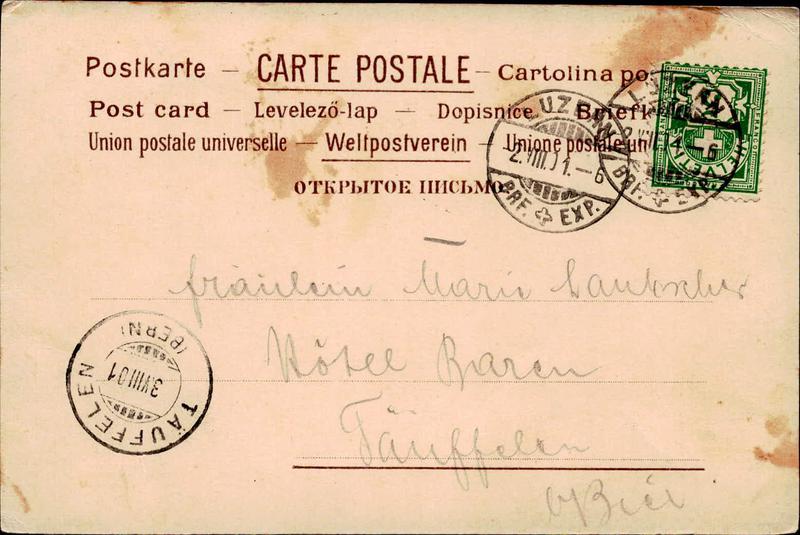 Postkarte — CARTE POSTALE — Cartolina po
Post card — Levelező-lap — Dopisnice — Briefk
Union postale universelle — Weltpostverein — Unione postale un
ОТКРЫТОЕ ПИСЬМО
LUZERN
2.VIII.01.-6
BRF. EXP.
LUZERN
2.VIII.01.-6
BRF. EXP.
5
HELVETIA
FRANCO
Fräulein Marie
Hôtel Baren
Täuffelen
b/Biel
TÄUFFELEN
(BERN)
3.VIII.01